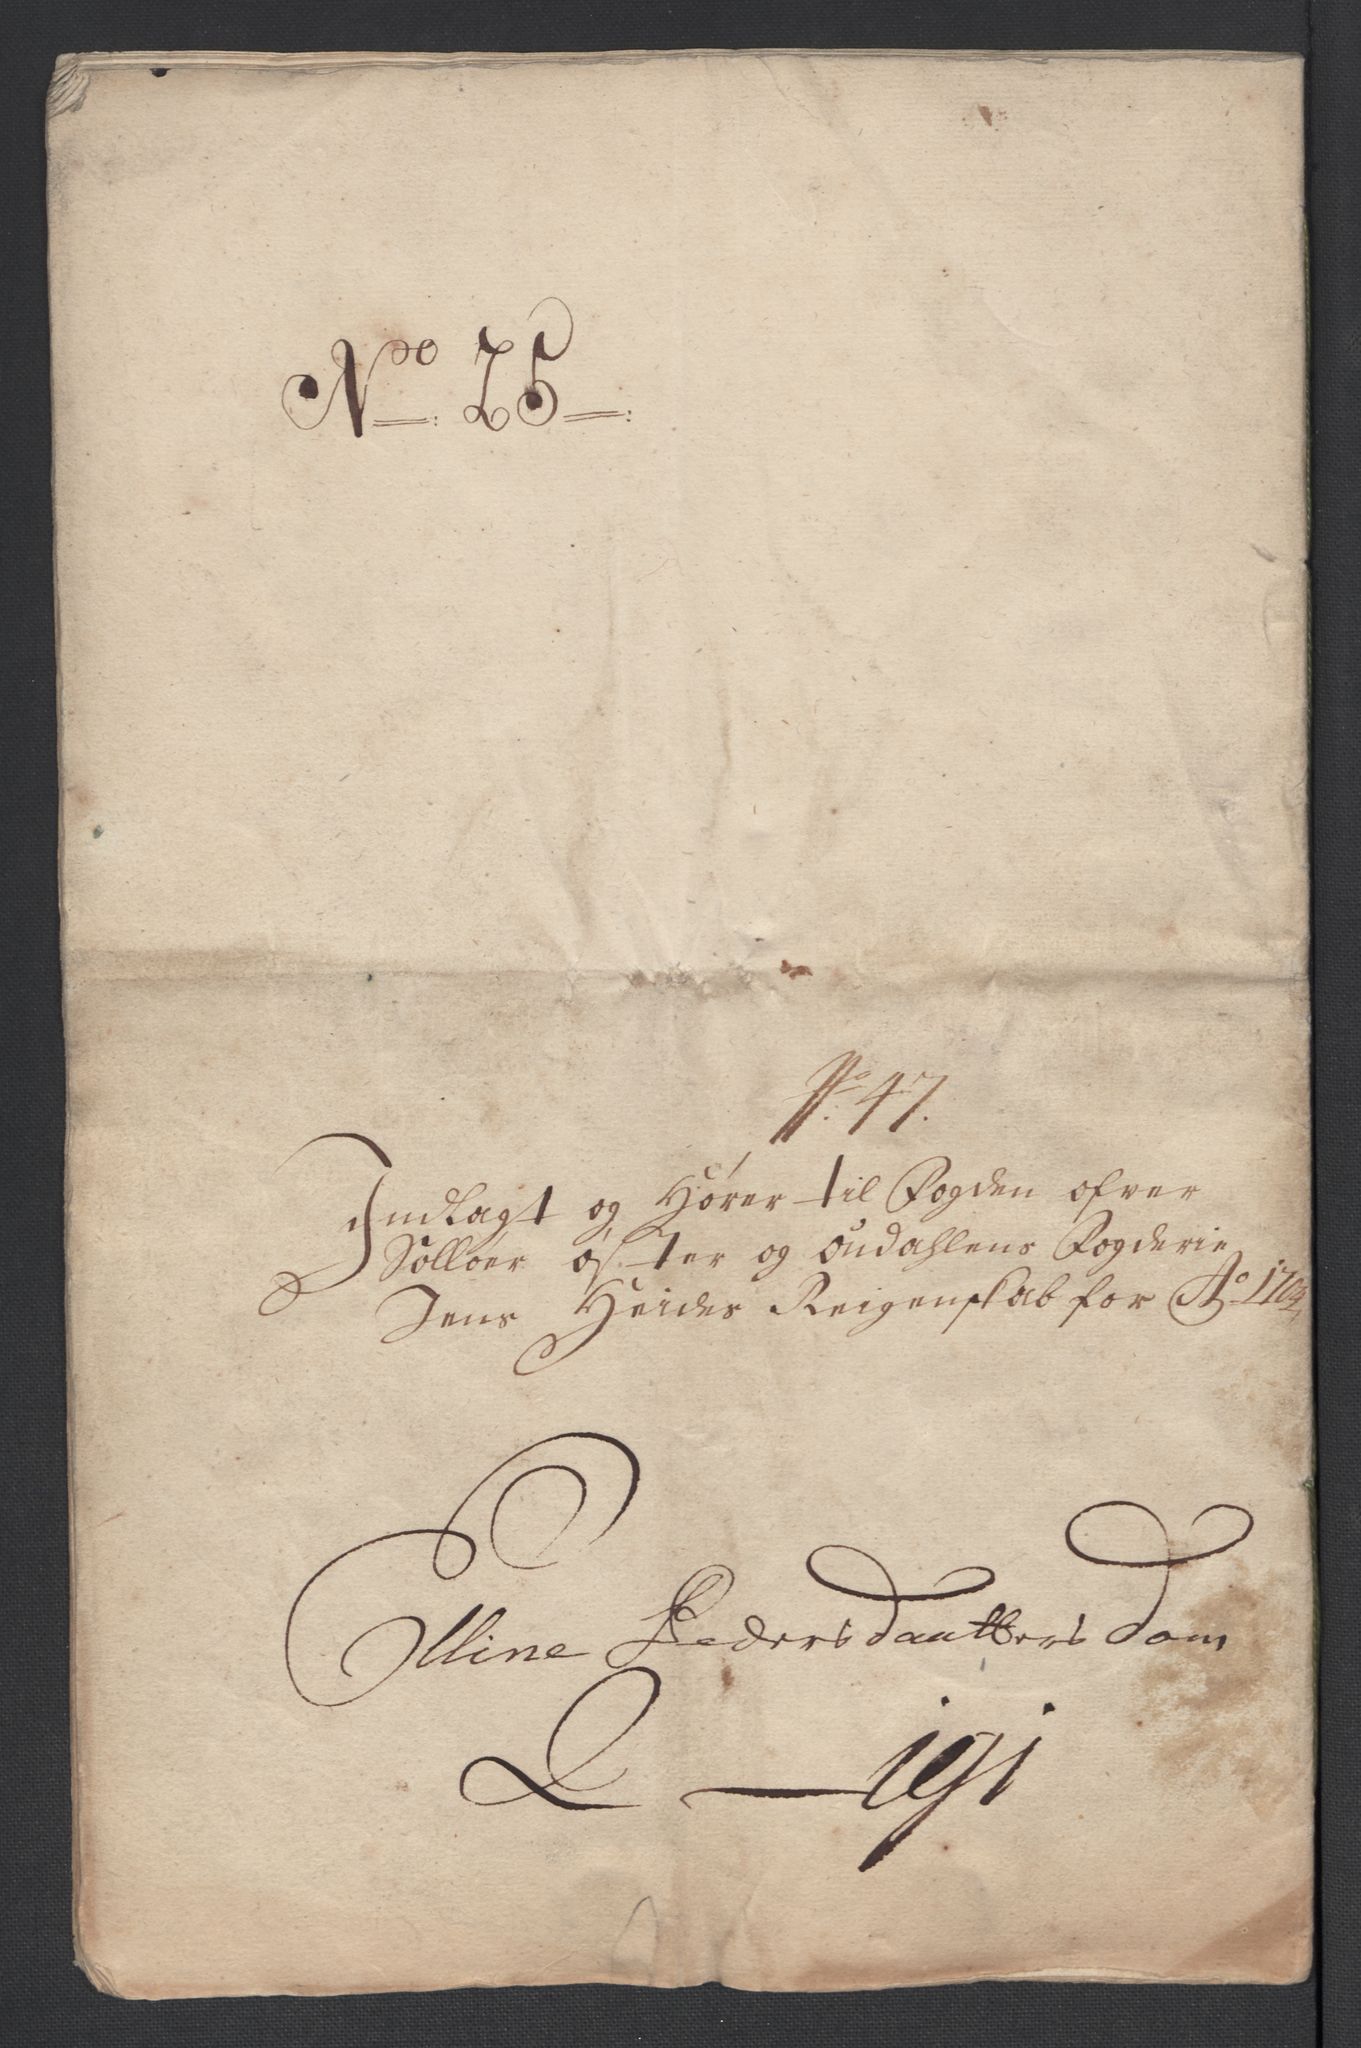 No 25
No 47.
Indlagt og Hører til Fogden ofver
Solløer øster og oudahlens Fogderie
Jens Heides Reigenskab for Ao 1704
Elline Pedersdautters Dom